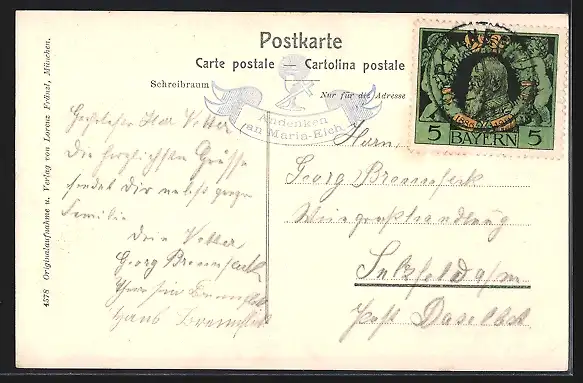 Postkarte
Carte postale — Cartolina postale
Schreibraum
Nur für die Adresse
Andenken
an Maria-Eich
5 BAYERN 5
4578 Originalaufnahme u. Verlag von Lorenz Fränzl, München.
Herr Vetter
Die herzlichsten Grüsse
sendet Dir nebst ganzer
Familie
Dein Vetter
Georg
Hans
Herrn
Georg
Weingroßhandlung
Sulzfeld a/m
Post Daselbst